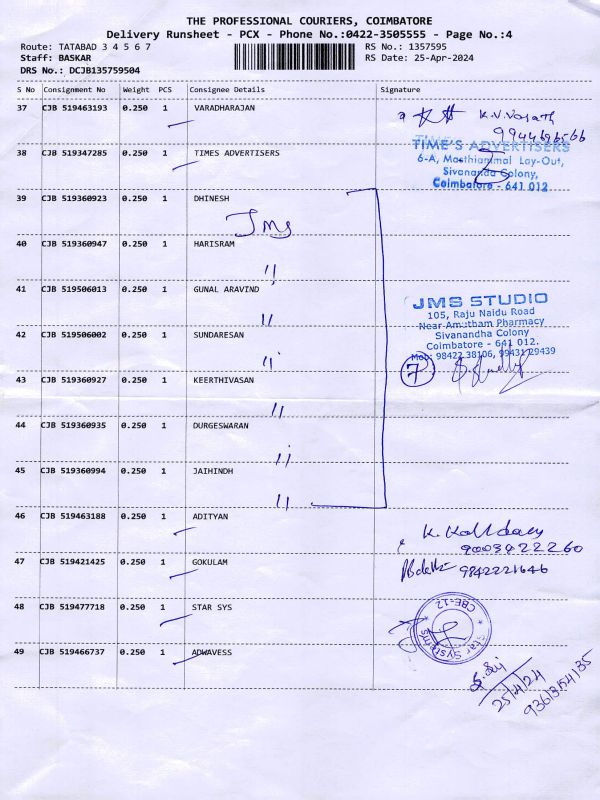 THE PROFESSIONAL COURIERS, COIMBATORE
Delivery Runsheet - PCX - Phone No.:0422-3505555 - Page No.:4
Route: TATABAD 3 4 5 6 7 RS No.: 1357595
Staff: BASKAR RS Date: 25-Apr-2024
DRS No.: DCJB135759504
S No Consignment No Weight PCS Consignee Details Signature
37 CJB 519463193 0.250 1 VARADHARAJAN
38 CJB 519347285 0.250 1 TIMES ADVERTISERS
TIME'S ADVERTISERS
6-A, Masthiammal Lay-Out,
Sivananda Colony,
Coimbatore - 641 012
39 CJB 519360923 0.250 1 DHINESH
JMS
40 CJB 519360947 0.250 1 HARISRAM
〃
41 CJB 519506013 0.250 1 GUNAL ARAVIND
〃
JMS STUDIO
105, Raju Naidu Road
Near Amutham Pharmacy
Sivanandha Colony
Coimbatore - 641 012.
Mob: 98422 38106, 99431 29439
7
42 CJB 519506002 0.250 1 SUNDARESAN
〃
43 CJB 519360927 0.250 1 KEERTHIVASAN
〃
44 CJB 519360935 0.250 1 DURGESWARAN
〃
45 CJB 519360994 0.250 1 JAIHINDH
〃
46 CJB 519463188 0.250 1 ADITYAN
9003922260
47 CJB 519421425 0.250 1 GOKULAM 9842221646
48 CJB 519477718 0.250 1 STAR SYS
Star Systems
CBE-12
49 CJB 519466737 0.250 1 ADWAVESS
25/4/24